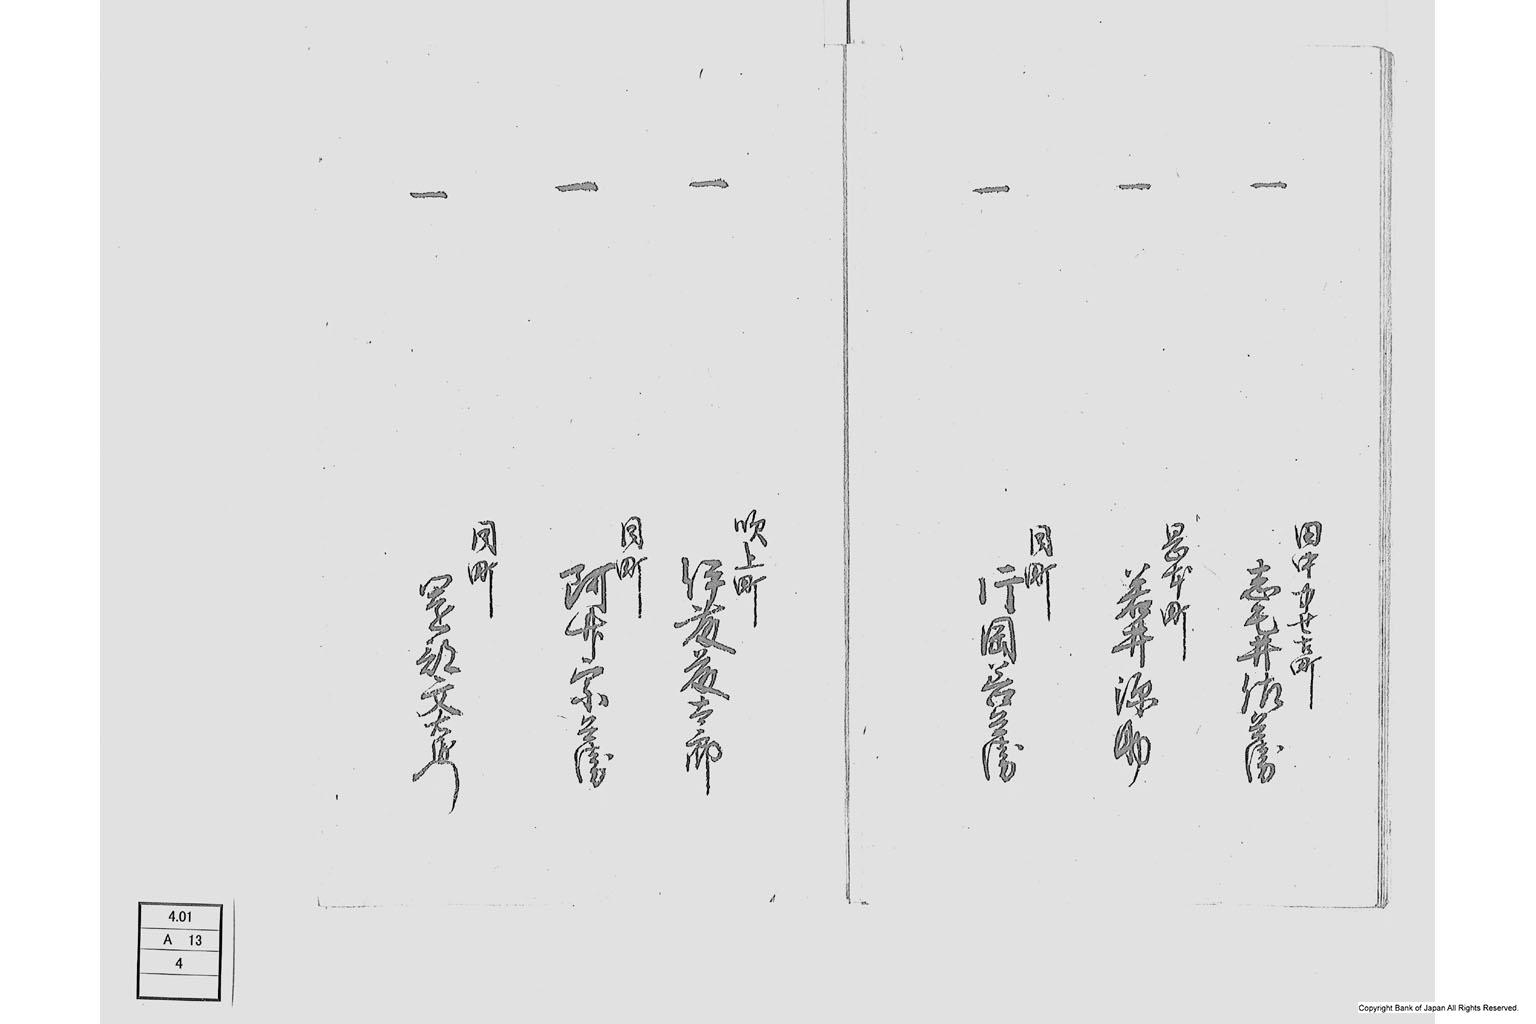 一
田中廿五町
志毛井佐兵衛
一
岩本町
若井源助
一
同町
片岡善兵衛
一
吹上町
伊藤藤吉郎
一
同町
阿井宗兵衛
一
同町
文左衛門
4.01
A 13
4
Copyright Bank of Japan All Rights Reserved.